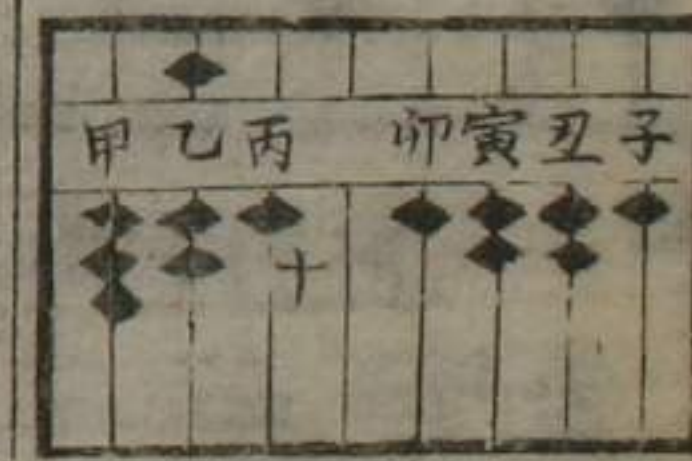 甲乙丙 卯寅丑子
十